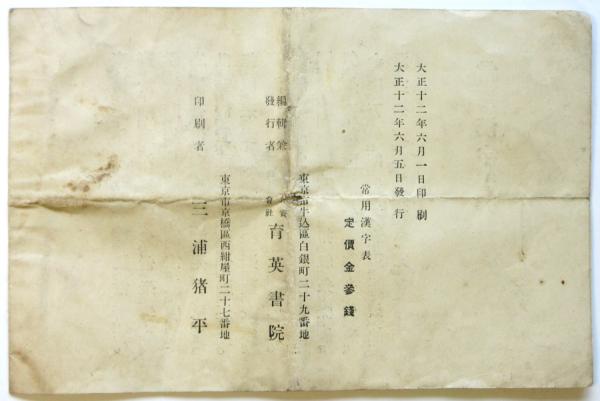 大正十二年六月一日印刷
大正十二年六月五日發行
常用漢字表
定價金參錢
東京市牛込區白銀町二十九番地
編輯兼
發行者
會社
育英書院
東京市京橋區西紺屋町二十七番地
印刷者
三浦猪平